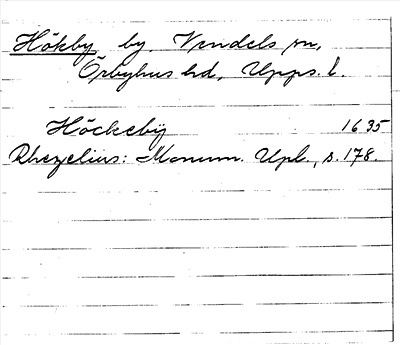 Hökby by, Vendels sn,
Örbyhus hd, Upps. l.
Höckebÿ 1635
Rhezelius: Monum. Upl., s. 178.